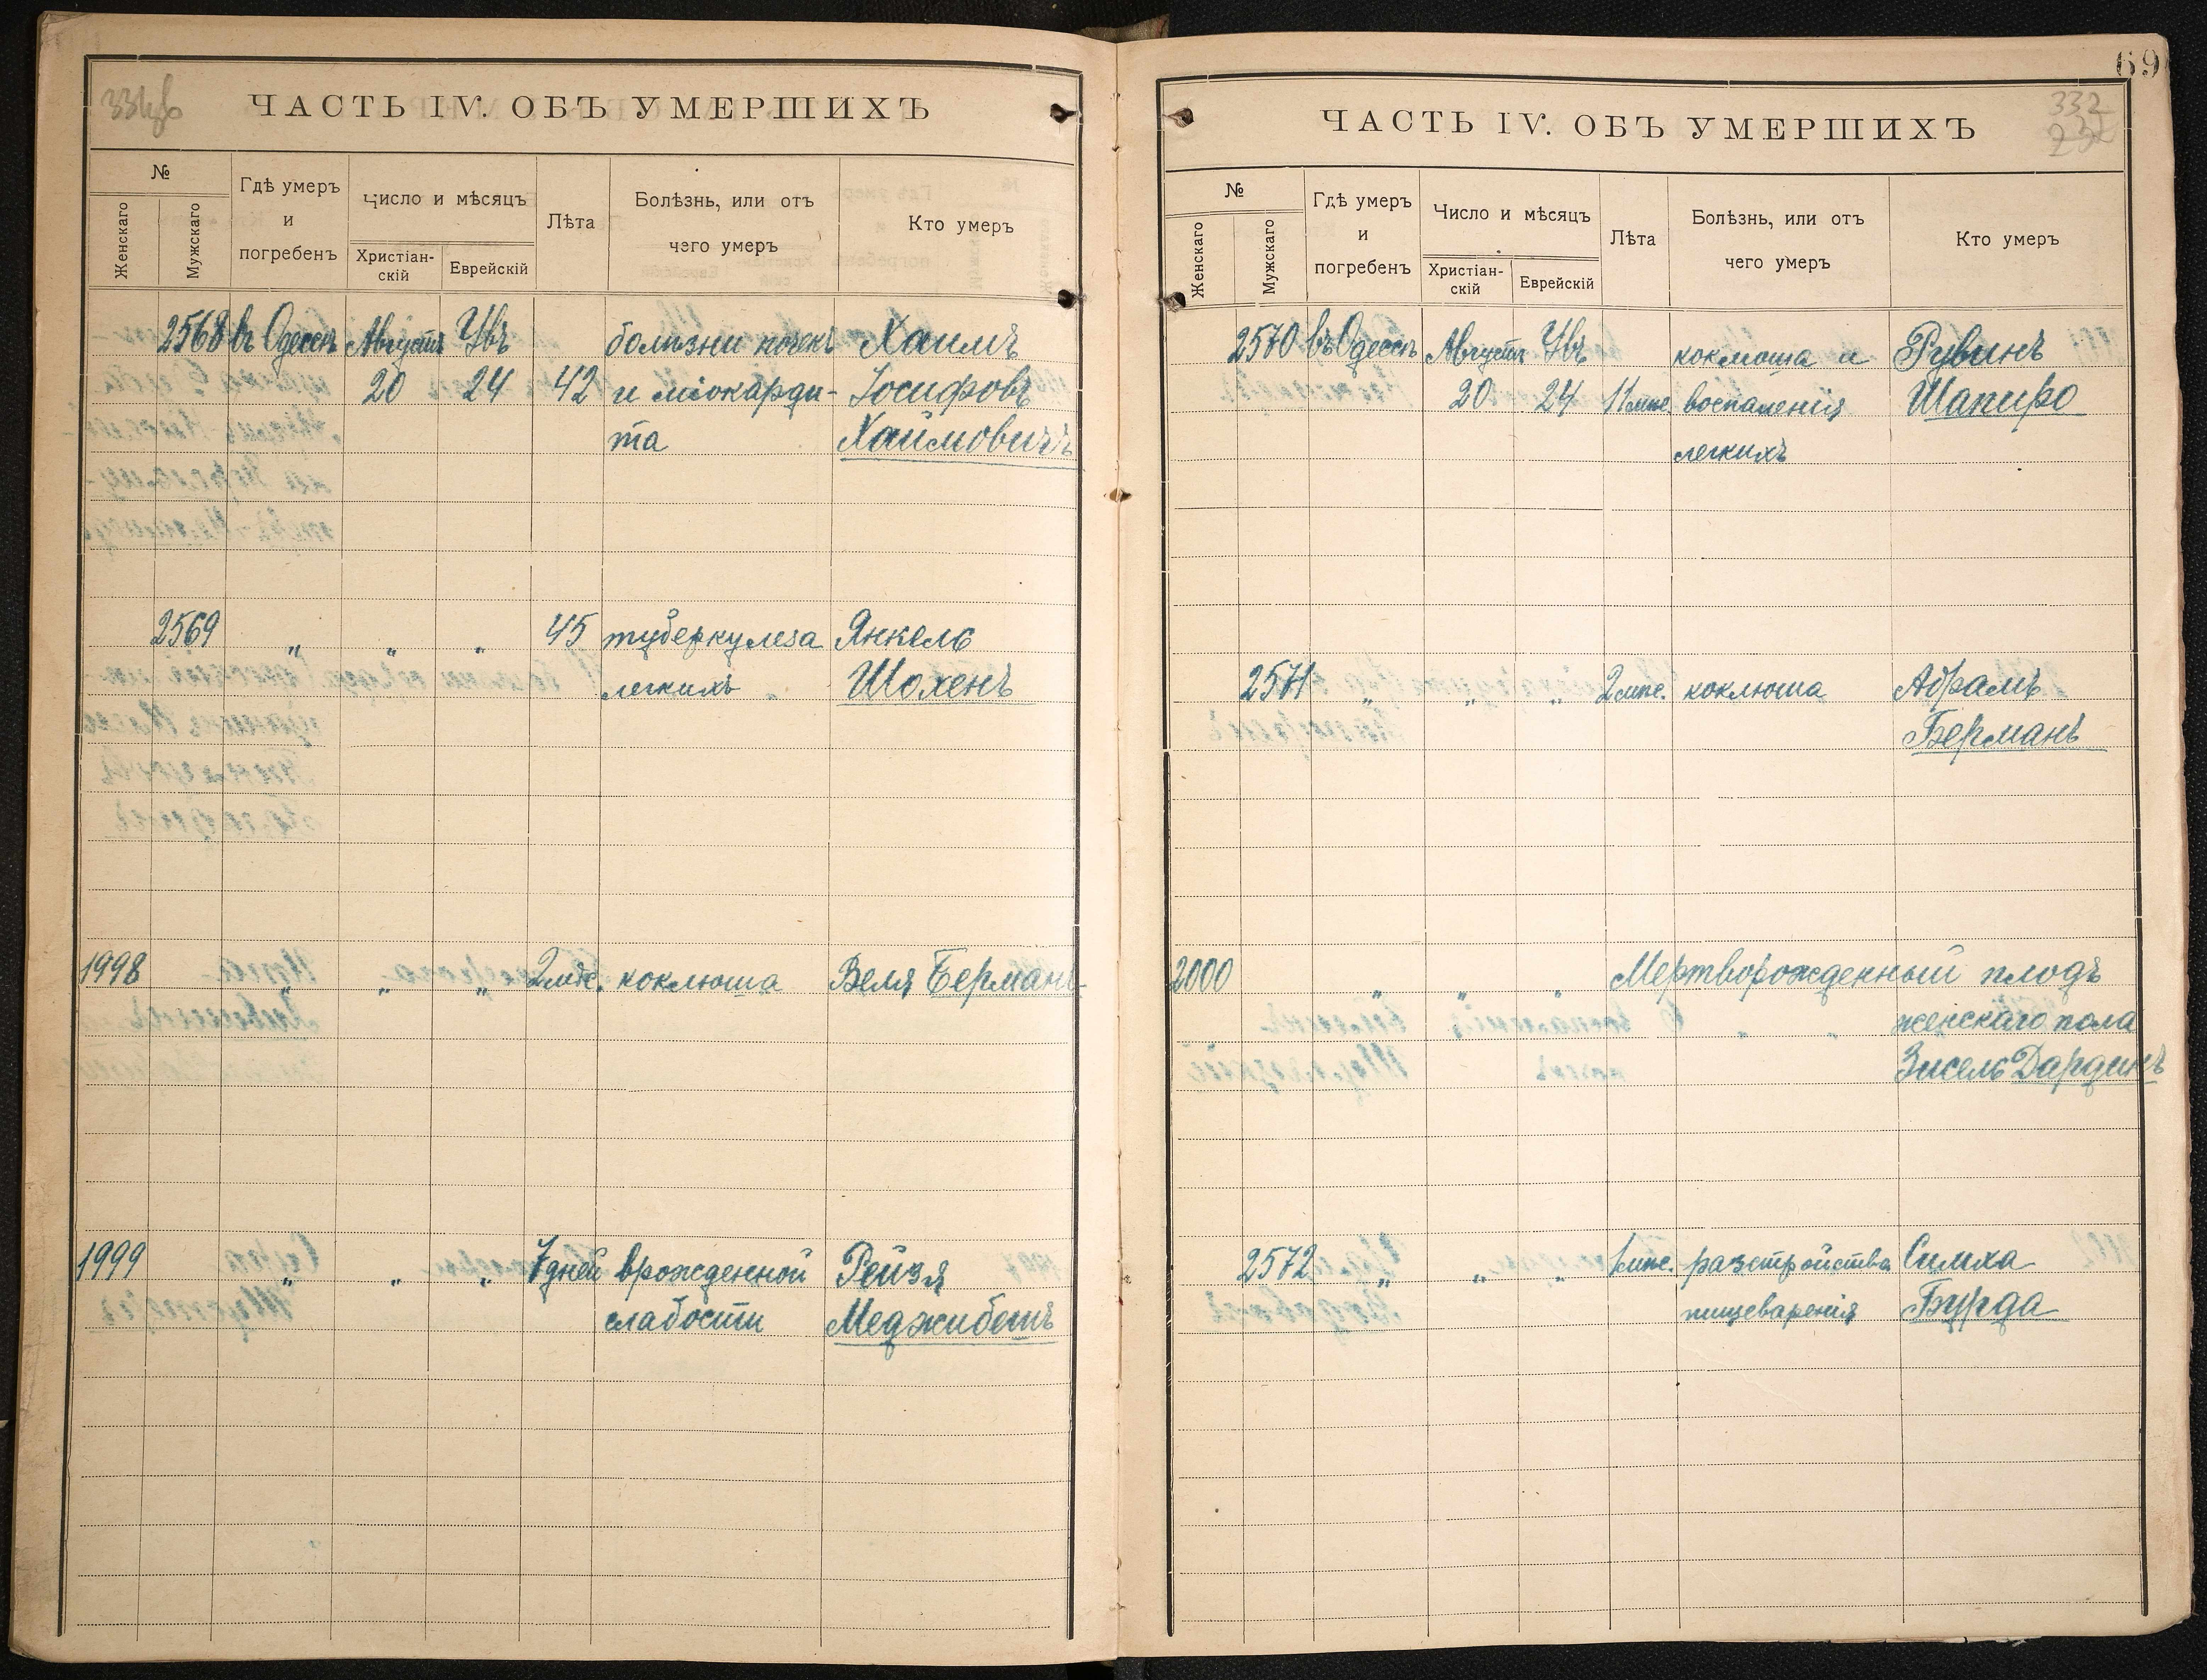 ЧАСТЬ IV. ОБЪ УМЕРШИХЪ
№
Женскаго
Мужскаго
Гдѣ умеръ
и
погребенъ
Число и мѣсяцъ
Христіан-
скій
Еврейскій
Лѣта
Болѣзнь, или отъ
чего умеръ
Кто умеръ
2568 въ Одессѣ Августъ Увъ болѣзни почекъ Хаимъ
20 24 42 и міокарди- Іосифовъ
та Хаймовичъ
2569 „ „ „ 45 туберкулеза Янкель
легкихъ Шохенъ
1998 „ „ „ 2 мѣс. коклюша Веля Берманъ
1999 „ „ „ 7 дней врожденной Рейзя
слабости Меджибошъ
69
332
ЧАСТЬ IV. ОБЪ УМЕРШИХЪ
№
Женскаго
Мужскаго
Гдѣ умеръ
и
погребенъ
Число и мѣсяцъ
Христіан-
скій
Еврейскій
Лѣта
Болѣзнь, или отъ
чего умеръ
Кто умеръ
2570 въ Одессѣ Августъ Увъ коклюша и Рувинъ
20 24 11 мѣс. воспаленія Шапиро
легкихъ
2571 „ „ „ 2 мѣс. коклюша Абрамъ
Берманъ
2000 „ „ „ Мертворожденный плодъ
„ „ женскаго пола
Зисель Дардикъ
2572 „ „ „ 1 мѣс. разстройства Симха
пищеваренія Бурда